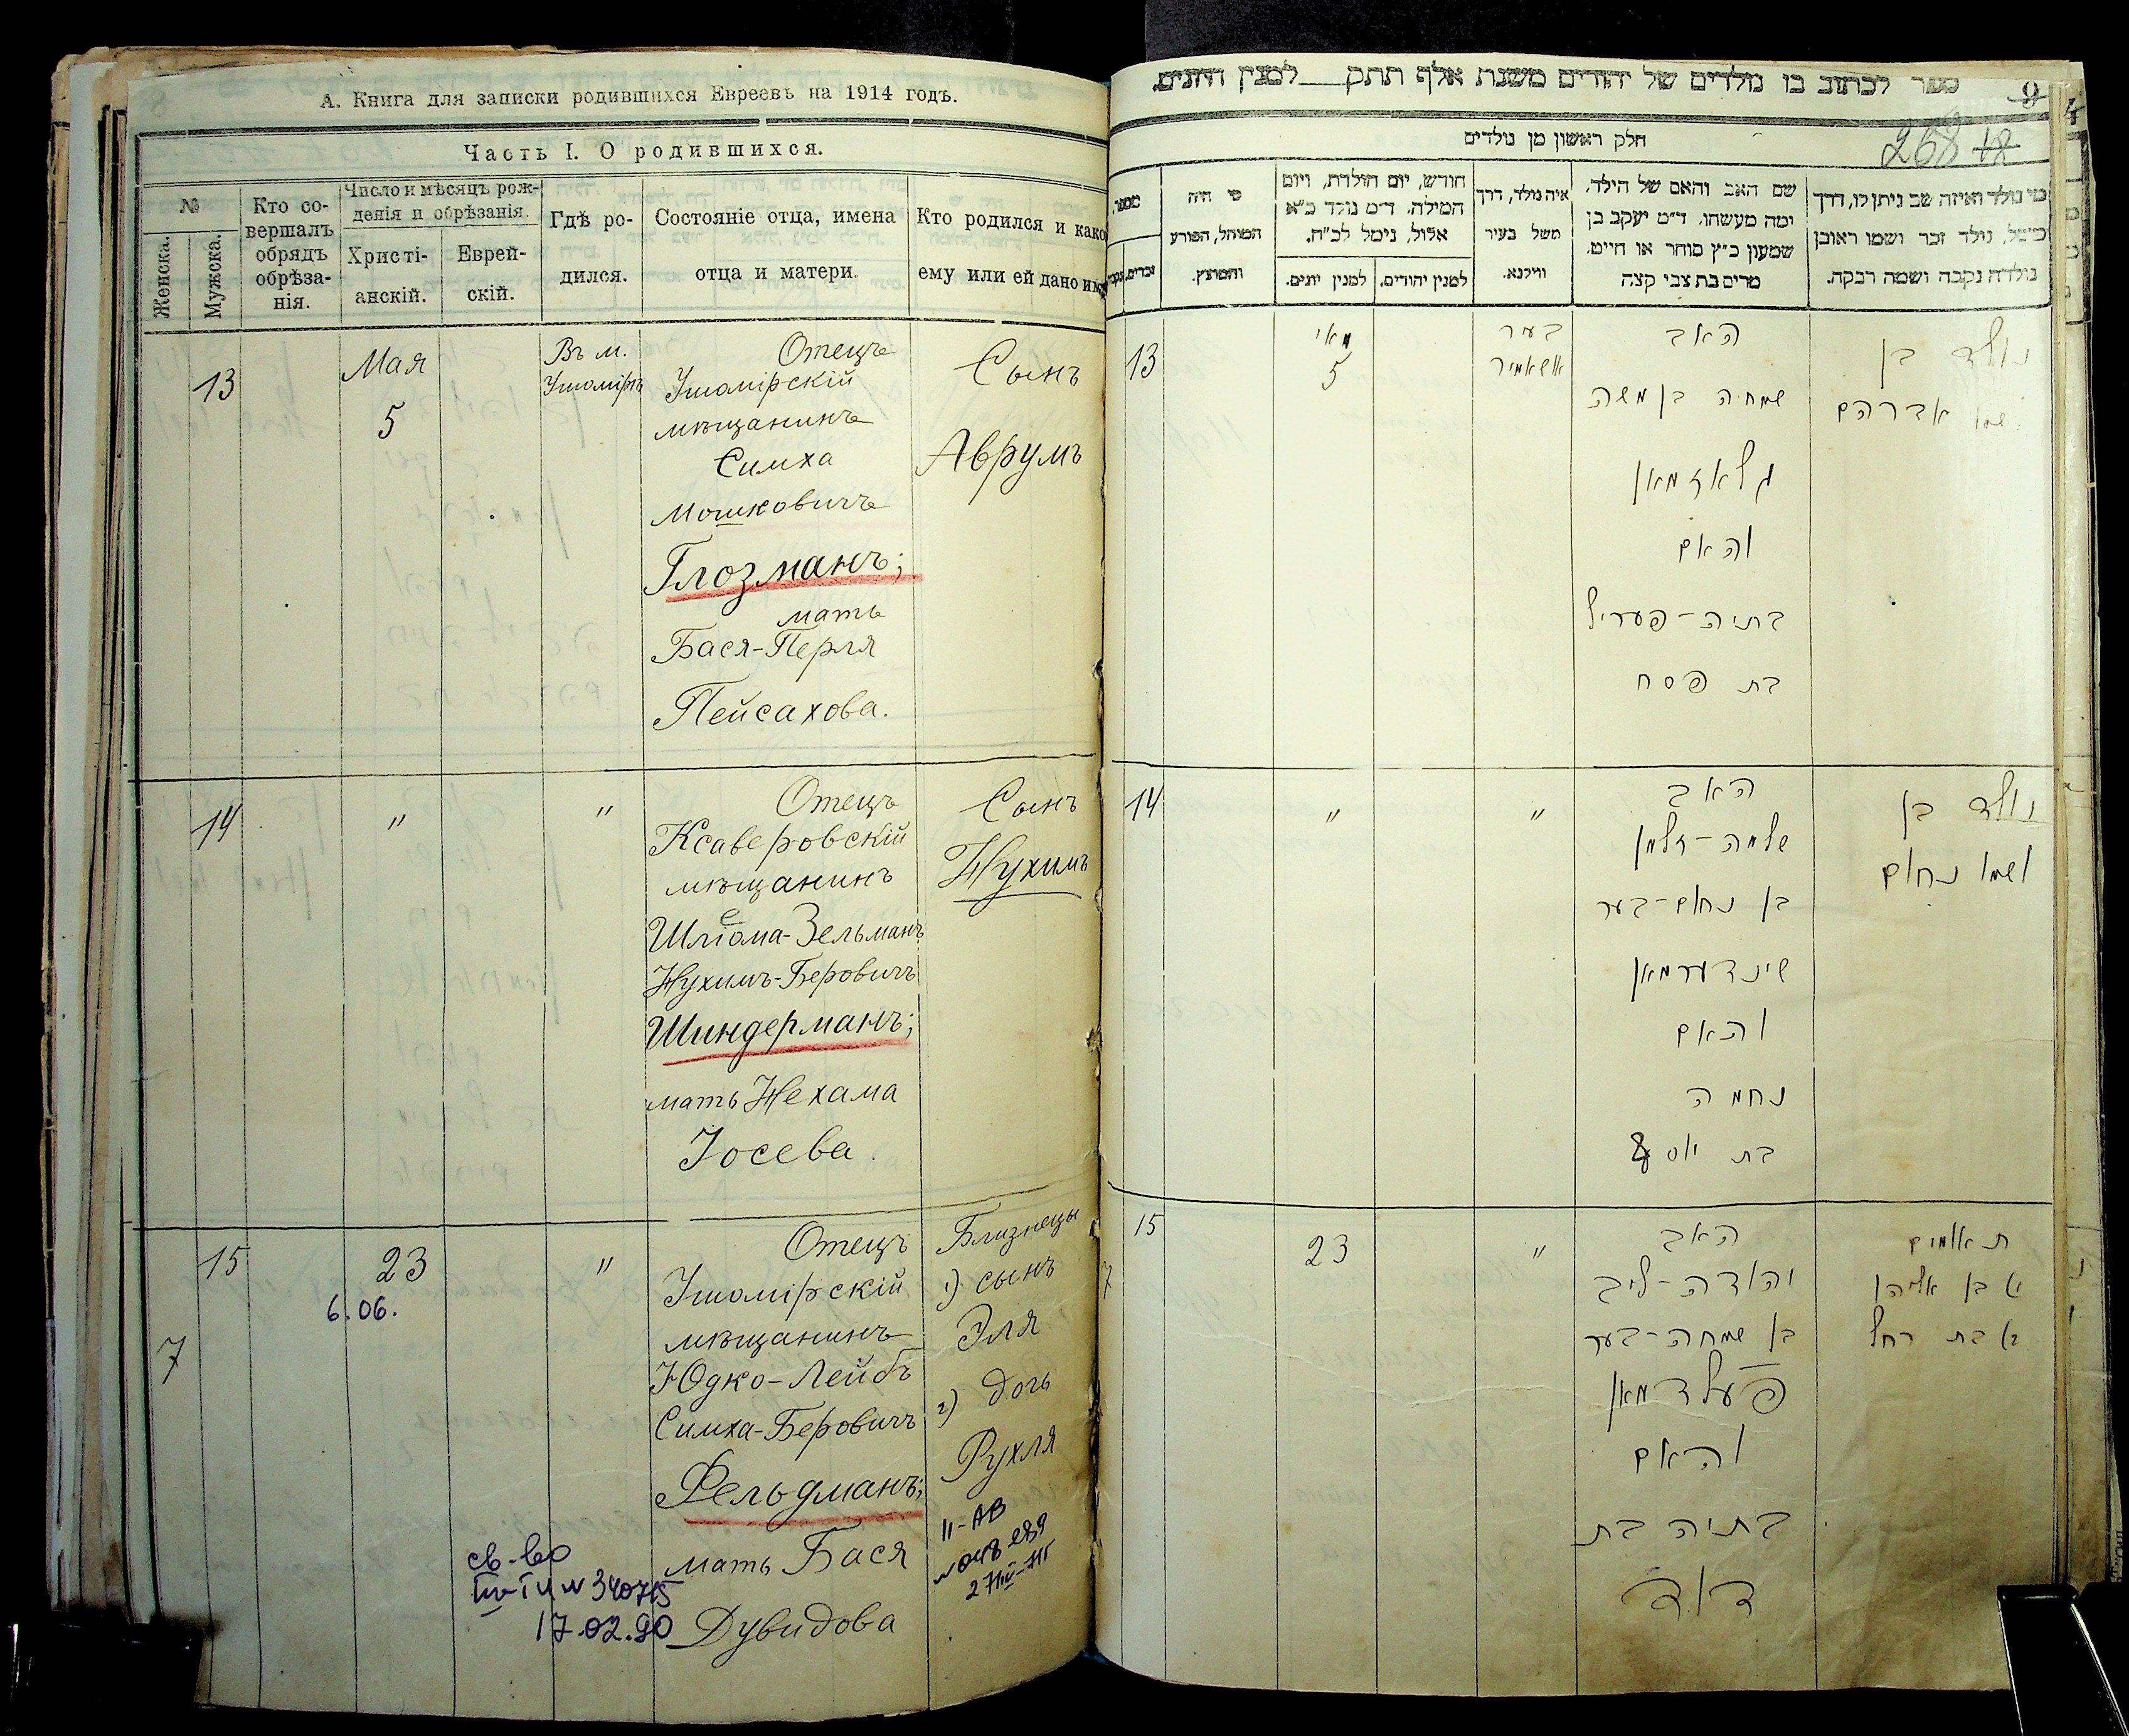 А. Книга для записки родившихся Евреевъ на 1914 годъ.
Часть I. О родившихся.
№
Женска.
Мужска.
Кто со-
вершалъ
обрядъ
обрѣза-
нія.
Число и мѣсяцъ рож-
денія и обрѣзанія.
Христі-
анскій.
Еврей-
скій.
Гдѣ ро-
дился.
Состояніе отца, имена
отца и матери.
Кто родился и како
ему или ей дано имя
13
Мая
5
Въ м.
Ушомірѣ
Отецъ
Ушомірскій
мѣщанинъ
Симха
Мошковичъ
Глозманъ;
мать
Бася-Перля
Пейсахова.
Сынъ
Аврумъ
14
"
"
Отецъ
Ксаверовскій
мѣщанинъ
Шліома-Зельманъ
Нухимъ-Беровичъ
Шиндерманъ;
мать Нехама
Іосева.
Сынъ
Нухимъ
15
7
23
6.06.
"
Отецъ
Ушомірскій
мѣщанинъ
Юдко-Лейбъ
Симха-Беровичъ
Фельдманъ;
мать Бася
Дувидова
Близнецы
1) сынъ
Эля
2) дочь
Рухля
II-АВ
св-во
340715
17.02.90
ספר לכתוב בו נולדים של יהודים משנת אלף תתק למנין היונים.
9
268 12
חלק ראשון מן נולדים
מספר.
זכרים.
מי היה
המוהל, הפורע
והמוצץ.
חודש, יום הולדת, ויום
המילה. ד"מ נולד כ"א
אלול, נימל לכ"ח.
למנין יונים.
למנין יהודים.
איה נולד, דרך
משל בעיר
ווילנא.
שם האב והאם של הילד.
ומה מעשהו. ד"מ יעקב בן
שמעון כ"ץ סוחר או חייט.
מרים בת צבי קצה
מי נולד ואיזה שם ניתן לו, דרך
משל, נולד זכר ושמו ראובן
נולדה נקבה ושמה רבקה.
13
מאי
5
בעיר
אושאמיר
האב
שמחה בן משה
גלאזמאן
והאם
בתיה-פעריל
בת פסח
נולד בן
ושמו אברהם
14
"
"
האב
שלמה-זלמן
בן נחום-בער
שינדערמאן
והאם
נחמה
בת יוסף
נולד בן
ושמו נחום
15
7
23
"
האב
יהודה-ליב
בן שמחה-בער
פעלדמאן
והאם
בתיה בת
דוד
תאומים
א בן אליהו
ב בת רחל